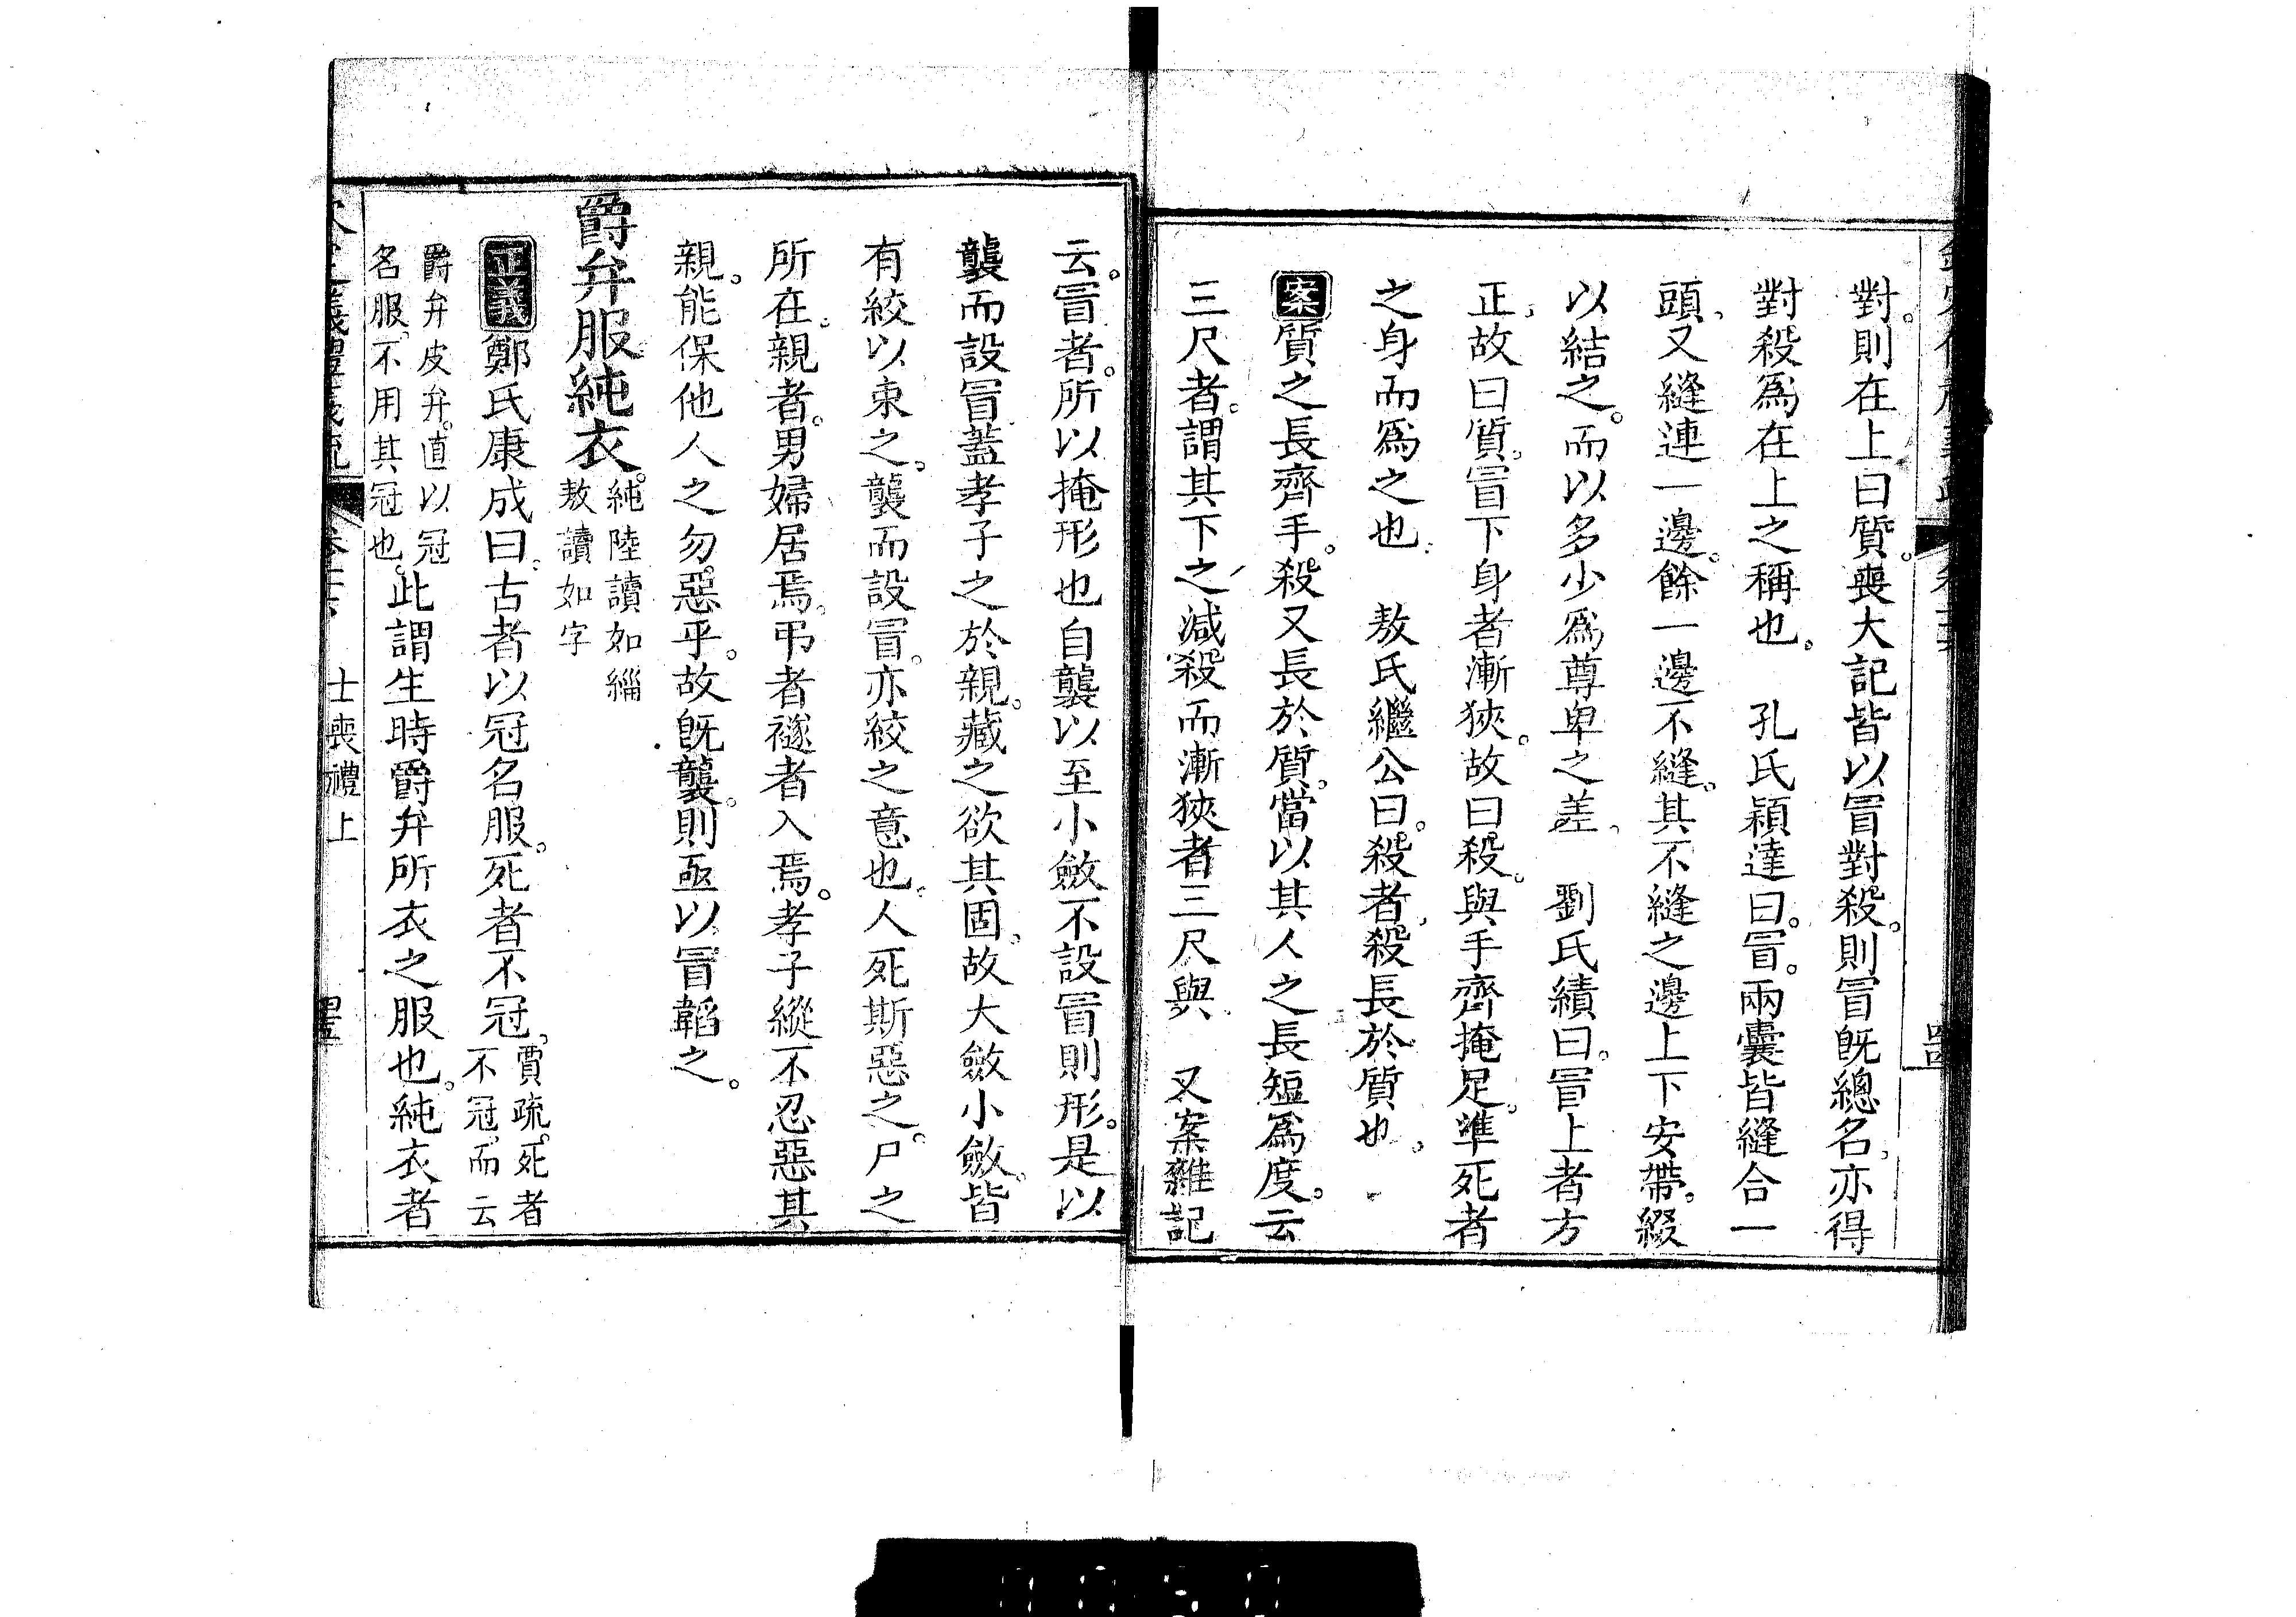 對。則在上曰質。喪大記皆以冒對殺。則冒旣總名。亦得
對殺爲在上之稱也。 孔氏穎達曰。冒。兩囊皆縫合一
頭。又縫連一邊。餘一邊不縫。其不縫之邊上下安帶。綴
以結之。而以多少爲尊卑之差。 劉氏績曰。冒上者方
正。故曰質。冒下身者漸狹。故曰殺。與手齊掩足。準死者
之身而爲之也。 敖氏繼公曰。殺者。殺長於質也。
案質之長齊手。殺又長於質。當以其人之長短爲度。云
三尺者。謂其下之減殺而漸狹者三尺與 又案雜記
云。冒者。所以掩形也自襲以至小斂不設冒則形。是以
襲而設冒蓋孝子之於親。藏之欲其固。故大斂小斂。皆
有絞以束之。襲而設冒。亦絞之意也。人死斯惡之。尸之
所在。親者。男婦居焉。弔者襚者入焉。孝子縱不忍惡其
親。能保他人之勿惡乎。故旣襲。則亟以冒韜之。
爵弁服純衣。純陸讀如緇
敖讀如字
正義鄭氏康成曰。古者以冠名服。死者不冠。賈疏。死者
不冠。而云
爵弁皮弁。直以冠
名服。不用其冠也。此謂生時爵弁所衣之服也。純衣者
士喪禮上